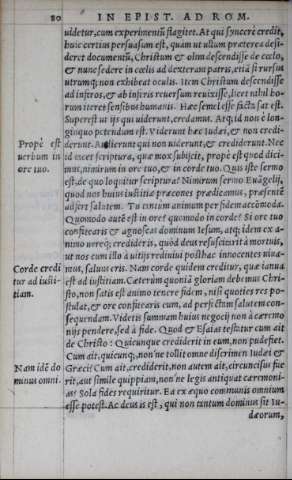 80 IN EPIST. AD ROM.
uidetur, cum experimentũ flagitet. At qui syncerè credit,
huic certius persuasum est, quàm ut ullum præterea desi-
deret documentũ, Christum & olim descendisse de cælo,
& nunc sedere in cælis ad dexteram patris, etiã si rursum
utrumq; non exhibeat oculis. Item Christum descendisse
ad inferos, & ab inferis reuersum reuixisse, licet nihil ho-
rum iteret sensibus humanis. Hæc semel esse facta sat est.
Superest ut ijs qui uiderunt, credamus. Atq; id non è lon-
ginquo petendum est. Viderunt hæc Iudæi, & non credi-
Propè est
uerbum in
ore tuo.
derunt. Audierunt qui non uiderunt, & crediderunt. Nec
id tacet scriptura, quæ mox subijcit, propè est quod dici-
mus, nimirum in ore tuo, & in corde tuo. Quis iste sermo
est de quo loquitur scriptura? Nimirum sermo Euãgelij,
quod nos huius iustitiæ præcones prædicamus, præsentẽ
adfert salutem. Tu tantum animum per fidem accõmoda.
Quomodo autẽ est in ore & quomodo in corde? Si ore tuo
confitearis & agnoscas dominum Iesum, atq; idem ex a-
nimo uereq; credideris, quòd deus resuscitarit à mortuis,
ut nos cum illo à uitijs rediuiui posthac innocentes uiua-
Corde credi
tur ad iusti-
tiam.
mus, saluus eris. Nam corde quidem creditur, quæ ianua
est ad iustitiam. Cæterim quoniã gloriam debemus Chri-
sto, non satis est animo tenere fidem, nisi quoties res po-
stulat, & ore confitearis eum, ad perfectam salutem con-
sequendam. Videris summam huius negocij non à cæremo
nijs pendere, sed à fide. Quod & Esaias testatur cum ait
de Christo: Quicunque crediderit in eum, non pudefiet.
Cum ait, quicunq;, non'ne tollit omne discrimen Iudæi &
Nam idẽ do
minus omni.
Græci? Cum ait, crediderit, non autem ait, circuncisus fue
rit, aut simile quippiam, non'ne legis antiquat cæremoni-
as? Sola fides requiritur. Ea ex æquo communis omnium
esse potest. Ac deus is est, qui non tantum dominus sit Iu-
dæorum,